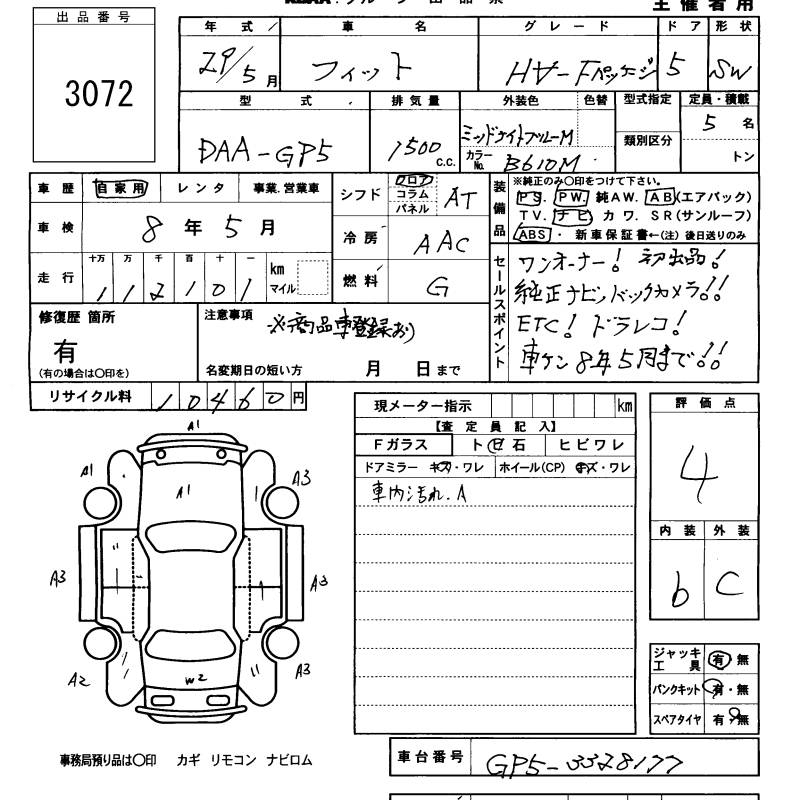 主催者用
出品番号
3072
年式 車名 グレード ドア 形状
29/5月 フィット HV-Fパッケージ 5 SW
型式 排気量 外装色 色替 型式指定 定員・積載
DAA-GP5 1500c.c. ミッドナイトブルーM 類別区分 5名
カラーNo. B610M トン
車歴 自家用 レンタ 事業.営業車 シフト フロア コラム パネル AT
車検 8年5月 冷房 AAC
走行 十万 万 千 百 十 一 km マイル 燃料 G
112101
装備品 ※純正のみ〇印をつけて下さい。
PS. PW. 純AW. AB(エアバック)
TV. ナビ カワ. SR(サンルーフ)
ABS・新車保証書←(注)後日送りのみ
セールスポイント
ワンオーナー! 初出品!
純正ナビ.バックカメラ!!
ETC! ドラレコ!
車ケン8年5月まで!!
修復歴 箇所 注意事項
有 ※商品車登録あり
(有の場合は〇印を) 名変期日の短い方 月 日まで
リサイクル料 10460円
現メーター指示 km
【査定員記入】
Fガラス ト 石 ヒビワレ
ドアミラー キズ・ワレ ホイール(CP) キズ・ワレ
車内汚れ.A
評価点
4
内装 外装
b C
A1
A1 A1 A3
A3 A3
A2 W2 A3
ジャッキ工具 有・無
パンクキット 有・無
スペアタイヤ 有・無
事務局預り品は〇印 カギ リモコン ナビロム
車台番号 GP5-3328177